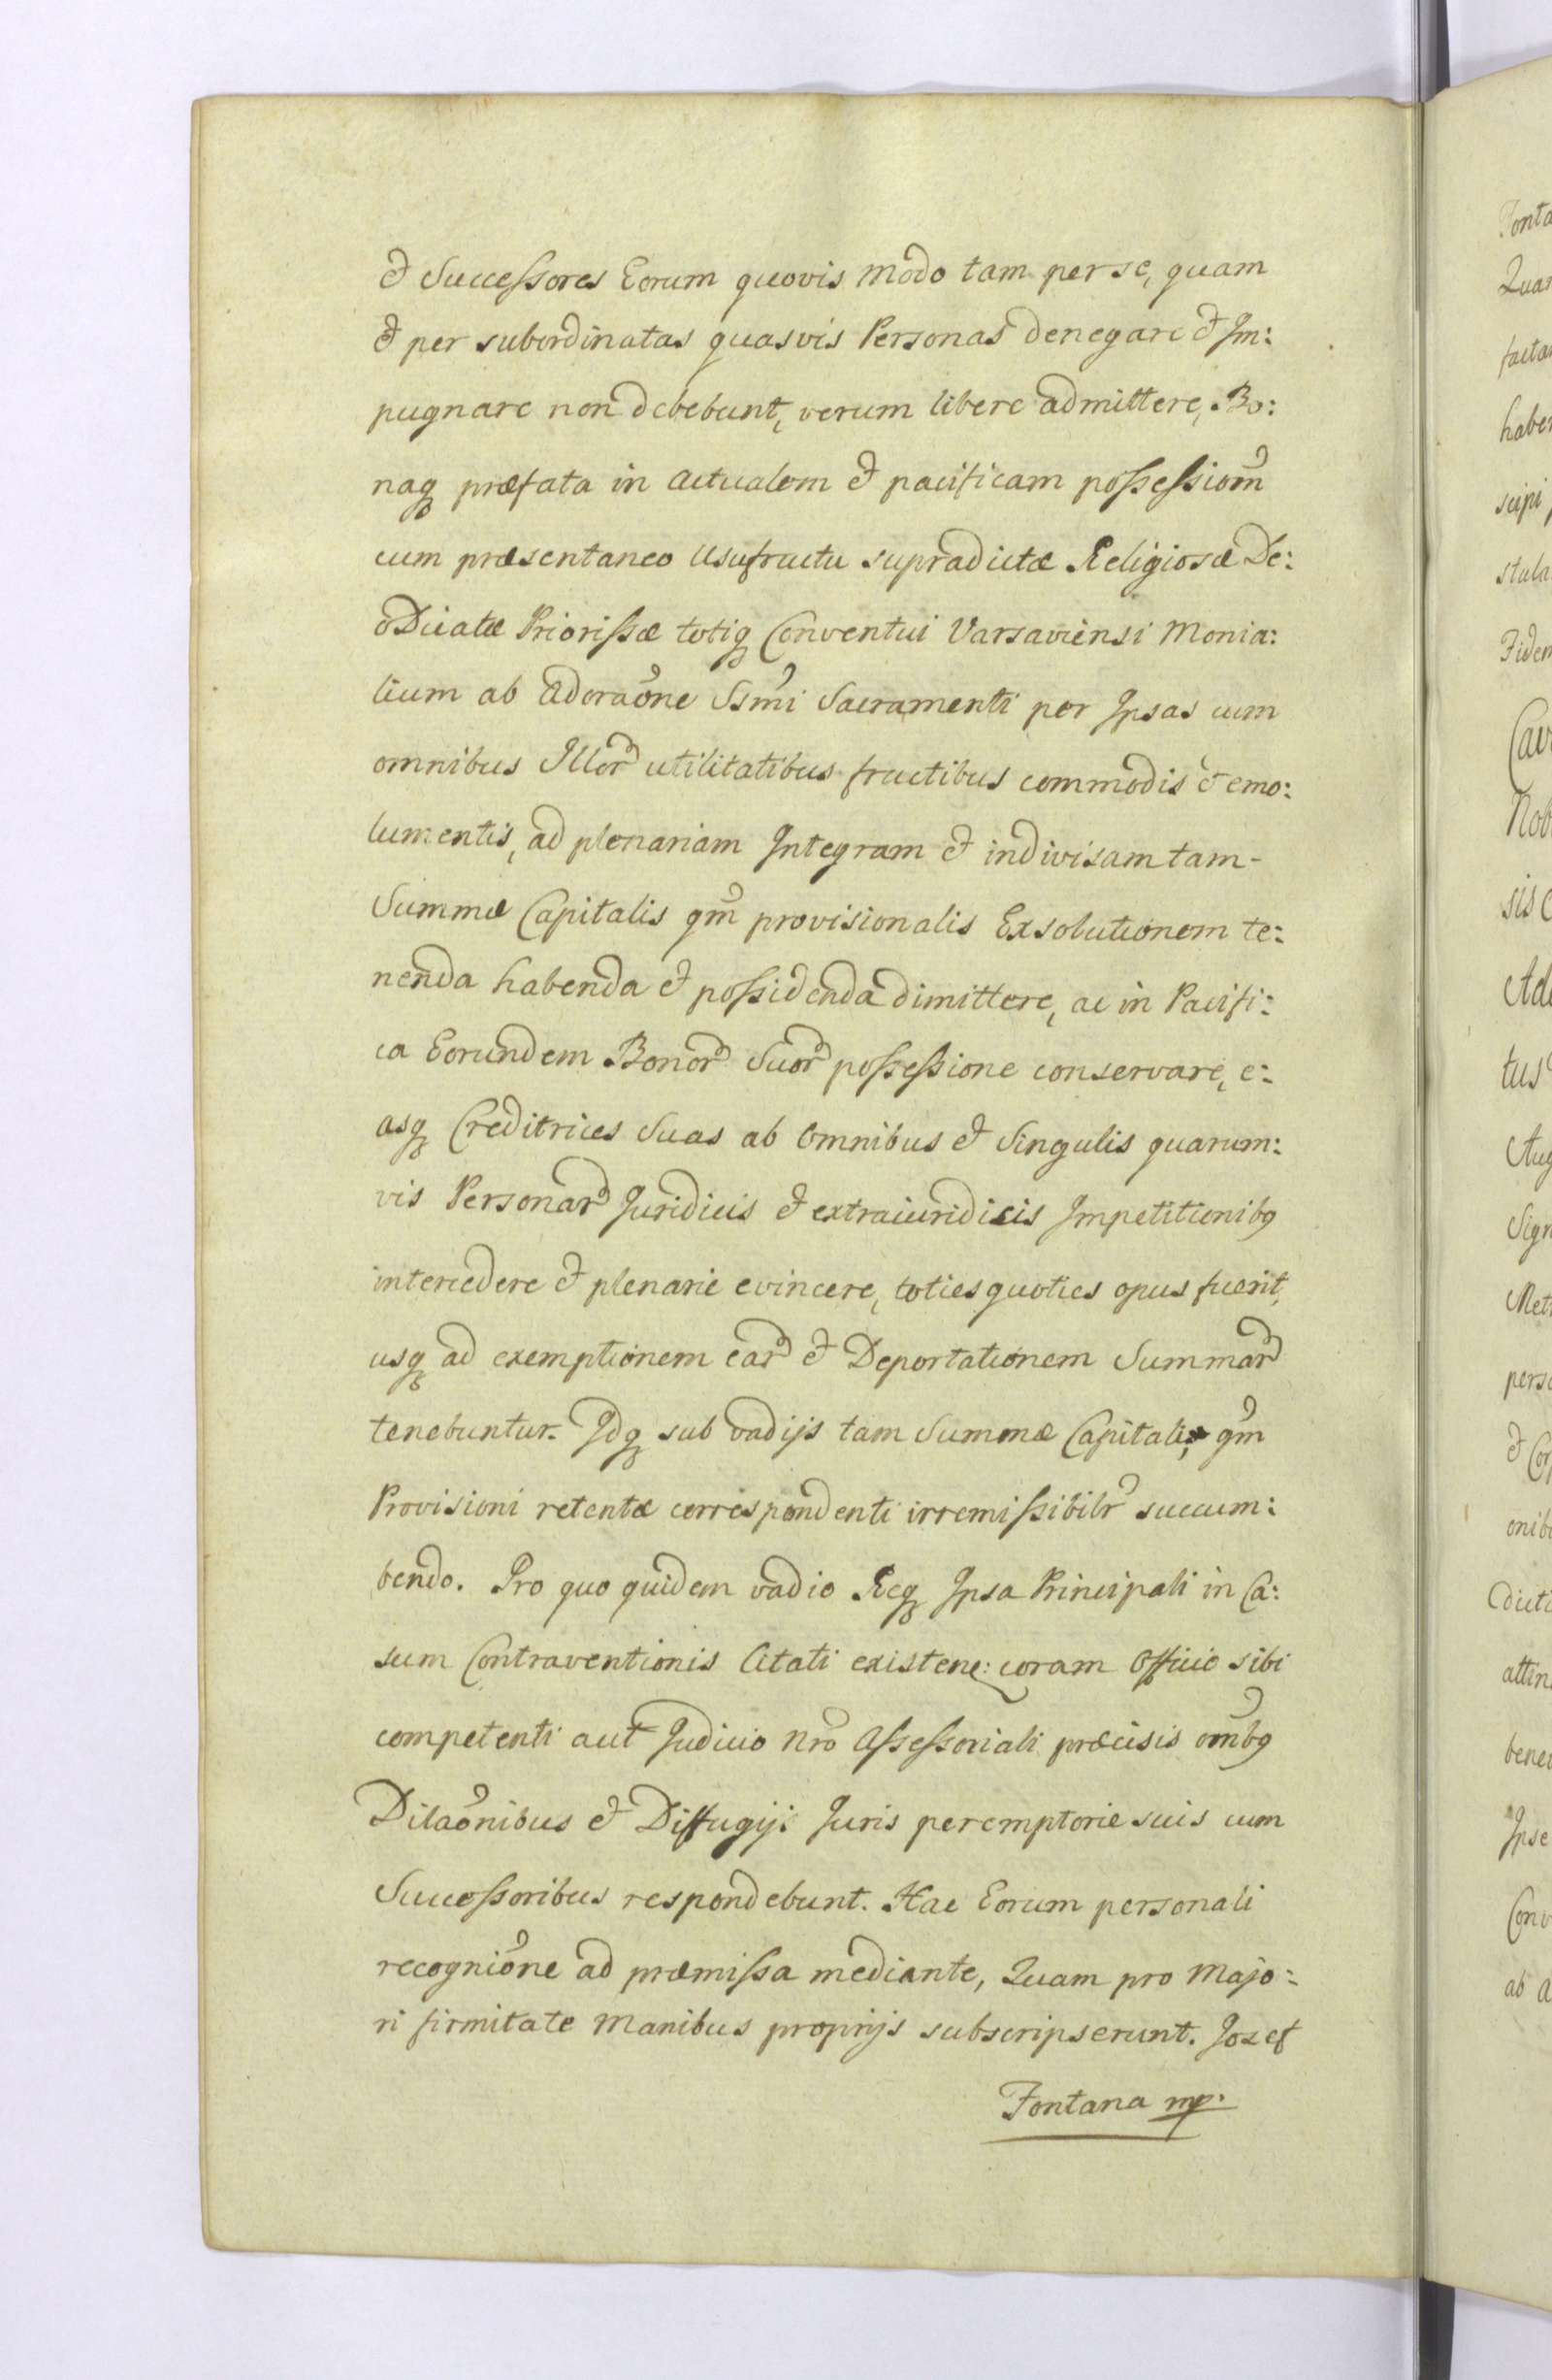 & Successores Eorum quovis modo tam per se, quam
& per subordinatas quasvis Personas denegare & Im:
pugnare non debebunt, verum libere admittere, Bo:
naq præfata in actualem & pacificam possessiom̃
cum præsentaneo usufructu supradictæ Religiosæ De:
o Dicatæ Priorissæ totiq Conventui Varsaviensi Monia:
lium ab Adoraõne Ssm̃i Sacramenti per Ipsas cum
omnibus Illor utilitatibus fructibus commodis & emo:
lumentis, ad plenariam Integram & indivisam tam-
Summæ Capitalis qm̃ provisionalis Exsolutionem te:
nenda habenda & possidenda dimittere, ac in Pacifi:
ca Eorundem Bonor Suor possessione conservare, e:
asq Creditrices Suas ab omnibus & Singulis quarum:
vis Personar Juridicis & extraiuridicis Impetitionibq
intercedere & plenarie evincere, toties quoties opus fuerit,
usq ad exemptionem ear & Deportationem Summar
tenebuntur. Idq sub vadijs tam Summæ Capitali, qm̃
Provisioni retentæ correspondenti irremissibilr̃ succum:
bendo. Pro quo quidem vadio Req Ipsa Principali in Ca:
sum Contraventionis Citati existen: coram Officio sibi
competenti aut Judicio Nr̃o Assessoriali præcisis om̃bq
Dilaõnibus & Diffugijs Juris peremptorie suis cum
Successoribus respondebunt. Hac Eorum personali
recogniõne ad præmissa mediante, Quam pro Majo:
ri firmitate Manibus proprijs subscripserunt. Jozef
Fontana mp.
Fonta
Qua
facta
habe
scipi
stula
Fidem
Nob
sis C
tus
Aug
Sign
Met
pers
& Cor
onib
dicti
attin
bene
Ipse
Conv
ab A